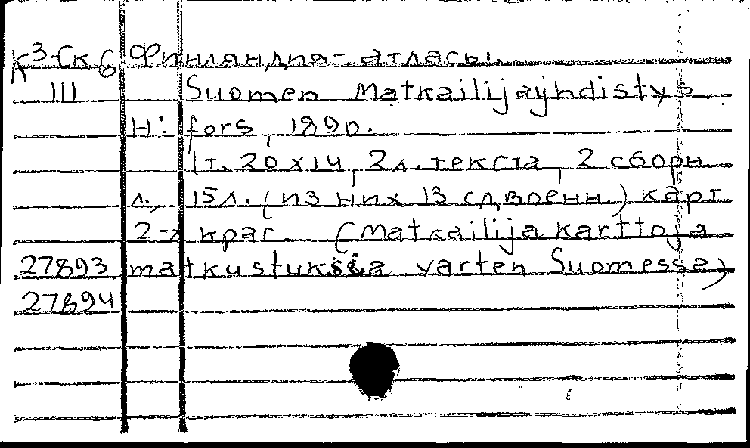 К 3-Ск 6 Финляндия-атласы.
III Suomen Matkailijayhdistys
H:fors, 1890.
1т. 20x14, 2л. текста, 2 сборн.
л., 15л. (из них 13 сдвоенн.) карт
2-х крас. (Matkailija karttoja
27893 matkustuksia varten Suomessa)
27894